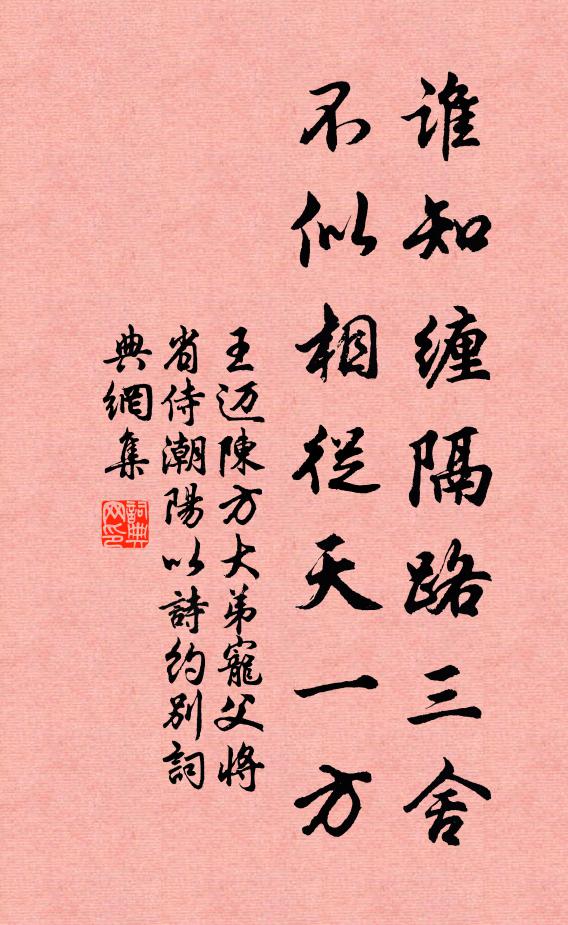 谁知缠隔路三舍
不似相從天一方
王迈陳方大弟寵父将
省侍潮陽以詩约别詞
典網集
詞典网印